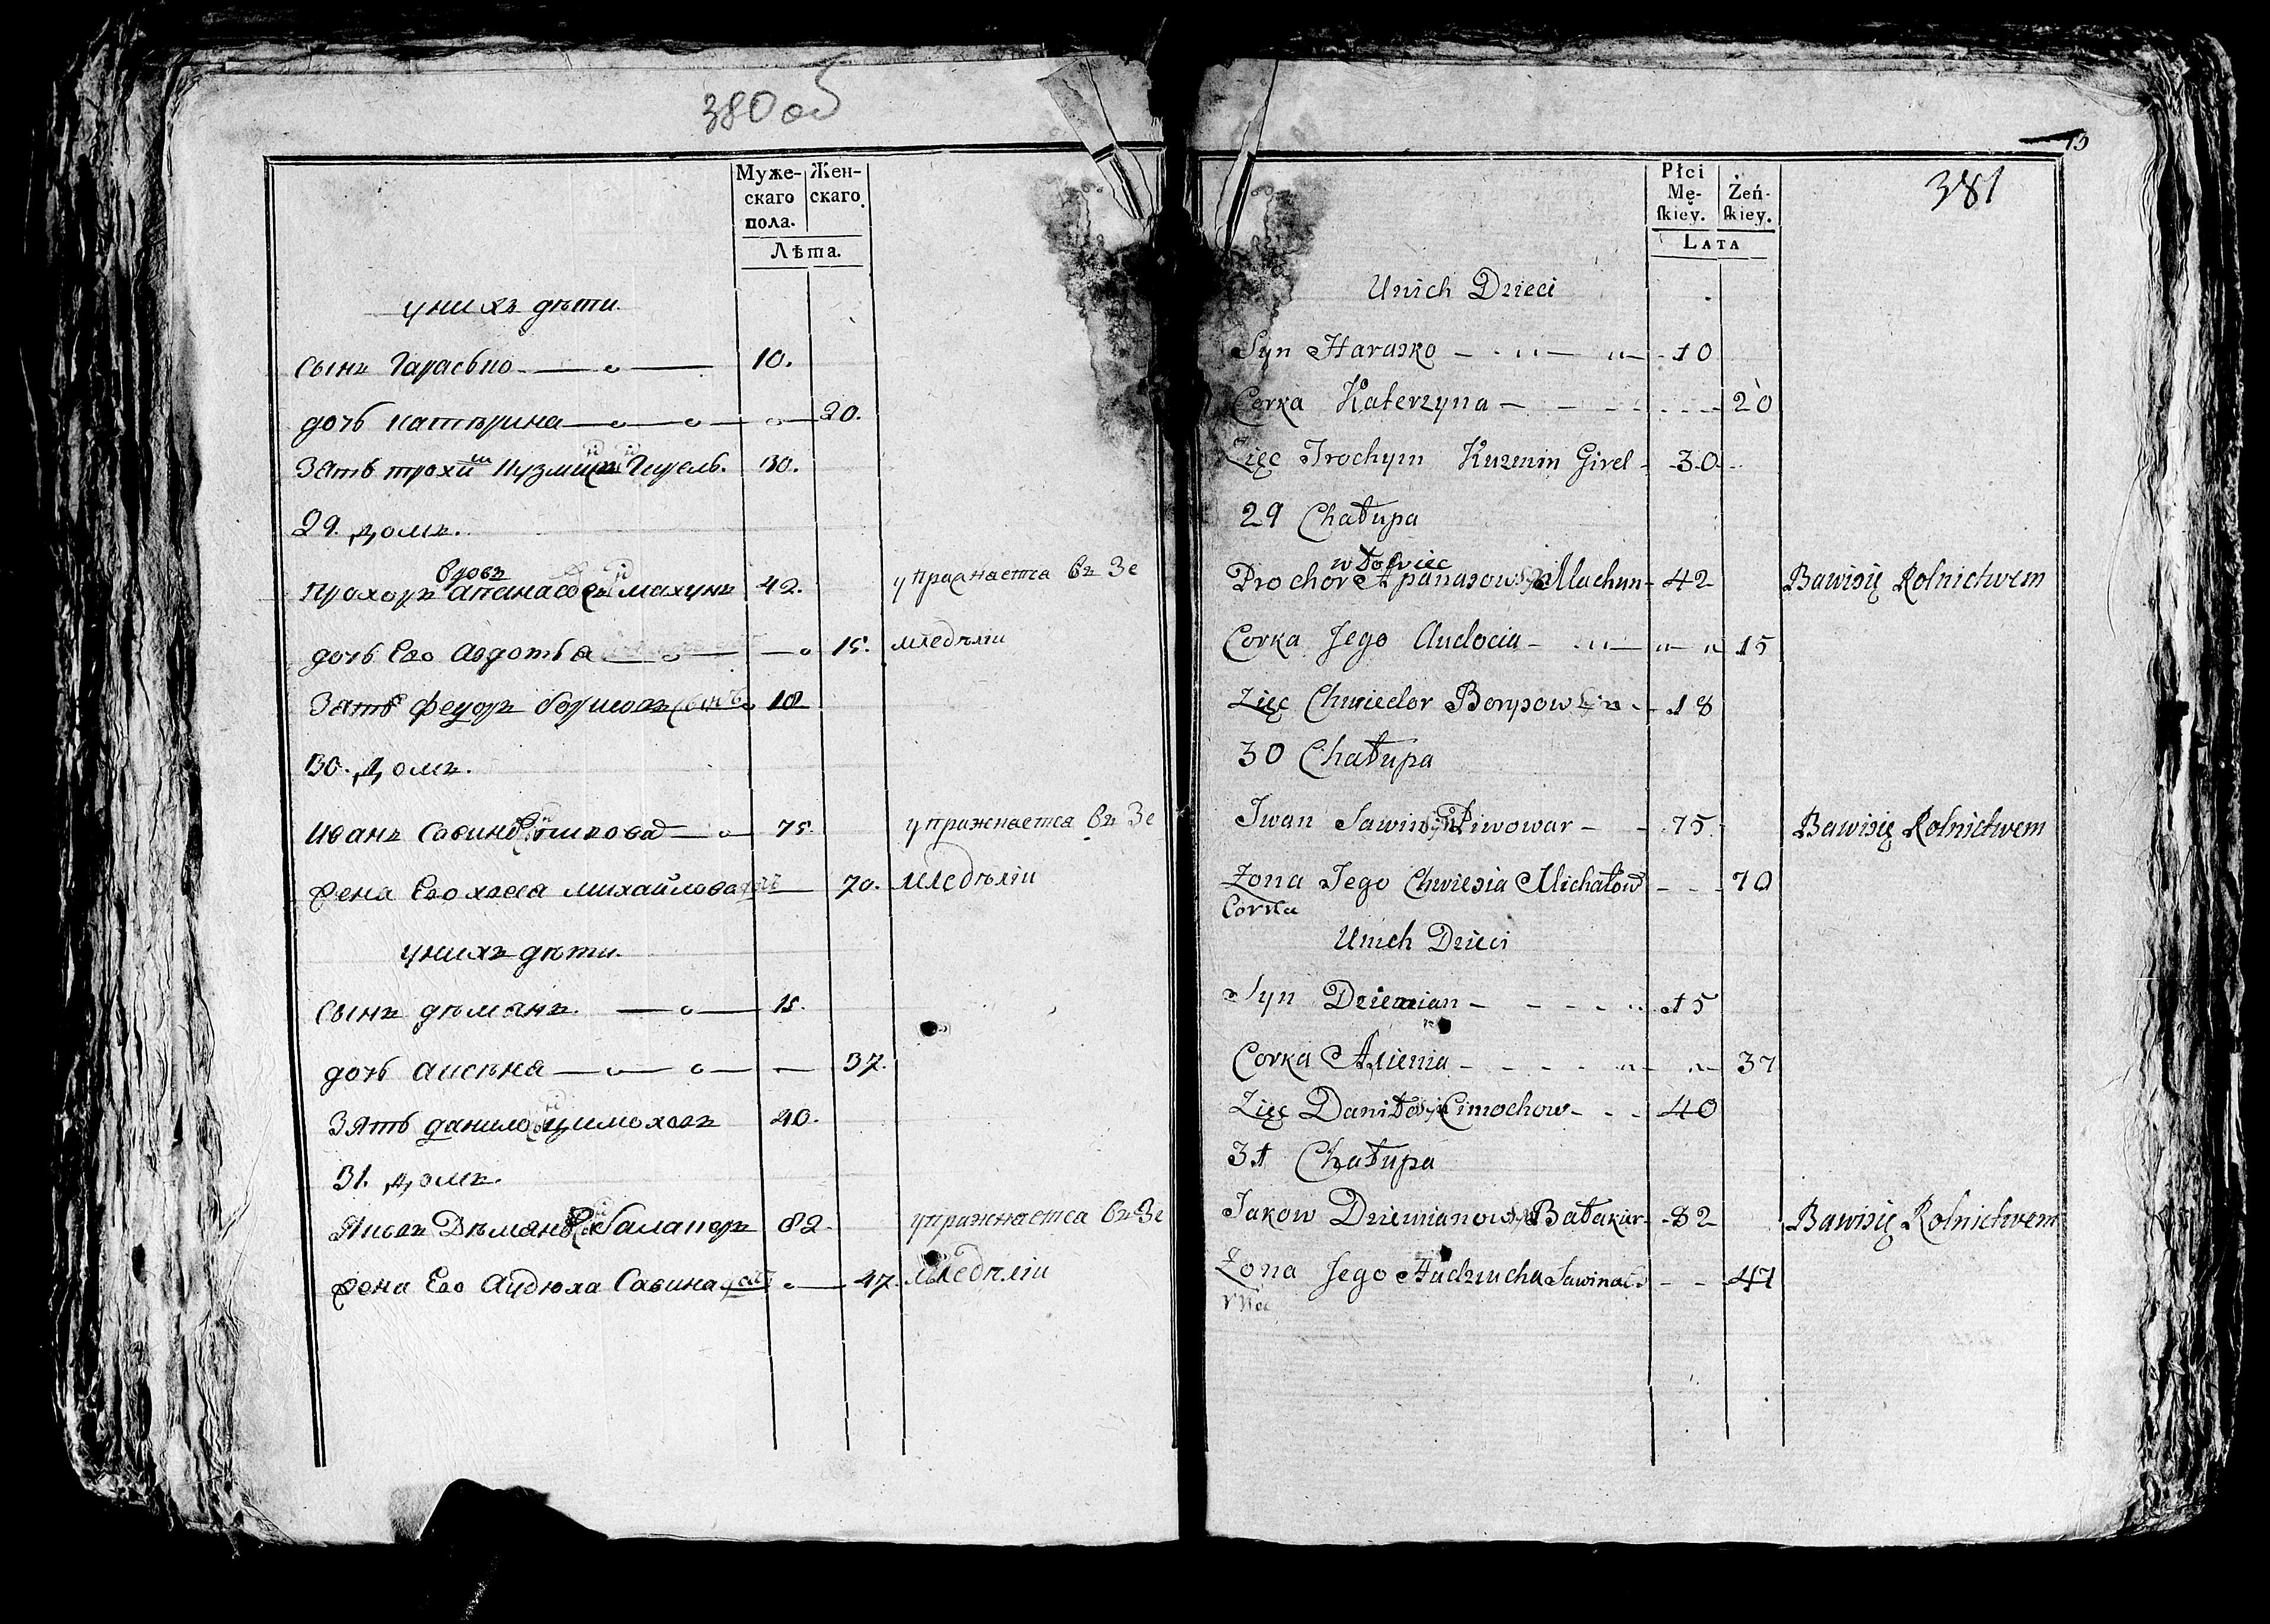 380 об
Муже-
скаго
пола.
Жен-
скаго.
Лѣта.
у нихъ дѣти.
сынъ Гарасько 10.
дочь катѣрина 20.
Зять трохим Кузмин Гирель. 30.
29. домъ.
вдовъ
Прохоръ апанасовъ махунъ 42. упражнаетса въ Зе
дочь Его авдотья 15. мледѣліи
Зять федоръ борисовъ сынъ 18
30. домъ.
Иванъ Савинъ 75. упражнаетса въ Зе
жена Его хвеся михайлова дочь 70. мледѣліи
у нихъ дѣти.
сынъ дѣмянъ. 15.
дочь аксѣна 37.
Зять данило цимоховъ 40.
31. домъ.
Яковъ Дѣмяновъ балакеръ 82. упражнаетса въ Зе
жена Его Аудюха Савина дочь 47. мледѣліи
13
381
Płci
Mę-
ſkiey.
Żeń-
ſkiey.
LATA
Unich Dzieci
Syn Harasko 10
Corka Katerzyna 20
Zięc Trochym Kuzmin Girel 30
29 Chałupa
wdowiec
Prochor Apanasow Syn Machun 42 Bawisię Rolnictwem
Corka Jego Audocia 15
Zięc Chwiedor Borysow Syn 18
30 Chałupa
Iwan Sawin Syn Piwowar 75 Bawisię Rolnictwem
Żona Jego Chwiesia Michałow 70
Corka
Unich Dzieci
Syn Dziemian 15
Corka Axienia 37
Zięc Daniło Syn Cimochow 40
31 Chałupa
Jakow Dziemianow Syn Bałakier 82 Bawisię Rolnictwem
Żona Jego Audziucha Sawina Co 47
rka